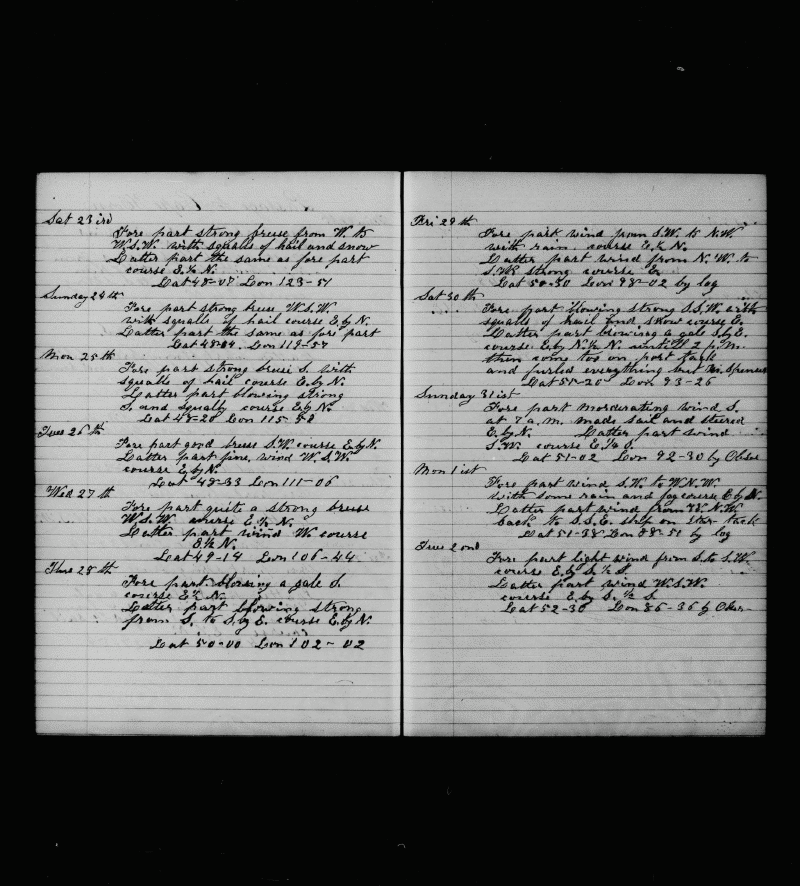 Sat 23ird
Fore part strong breise from W. to
W.S.W. with squalls of hail and snow
Latter part the same as fore part
course E.½ N.
Lat 48-07 Lon 123-51
Sunday 24th
Fore part strong breise W.S.W.
with squalls of hail course E. by N.
Latter part the same as fore part
Lat 48-04 Lon 119-57
Mon 25th
Fore part strong breise S. with
squalls of hail course E. by N.
Latter part blowing strong
S. and squaly course E by N.
Lat 48-20 Lon 115-58
Tues 26th
Fore part good breise S.W. course E. by N.
Latter part fine, wind W.S.W.
course E by N.
Lat 48-33 Lon 111-06
Wed 27th
Fore part quite a strong breise
W.S.W. course E ½ N.
Latter part wind W. course
E ½ N.
Lat 49-14 Lon 106-44
Thurs 28th
Fore part blowing a gale S.
course E ½ N.
Latter part blowing strong
from S. to S. by E. course E. by N.
Lat 50-00 Lon 102-02
Fri 29th
Fore part wind from S.W. to N.W.
with rain. course E. ½ N.
Latter part wind from N.W. to
S.W. strong course E.
Lat 50-30 Lon 98-02 by log
Sat 30th
Fore part blowing strong S.S.W. with
squalls of hail and snow course E.
Latter part blowing a gale S. by E.
course E. by N. ½ N. untill 2 p.m.
then come too on port tack
and furled everything but Spencer
Lat 51-20 Lon 93-26
Sunday 31ist
Fore part morderating wind S.
at 7 a.m. made sail and steered
E. by S. Latter part wind
S.W. course E. ½ S.
Lat 51-02 Lon 92-30 by Obser
Mon 1ist
Fore part wind S.W. to W.N.W.
with some rain and fog course E by N.
Latter part wind from W.N.W.
back to S.S.E. ship on star tack
Lat 51-38 Lon 88-51 by log
Tues 2ond
Fore part light wind from S. to S.W.
course E. by S. ½ S.
Latter part wind W.S.W.
course E. by S. ½ S.
Lat 52-30 Lon 86-36 by Obser